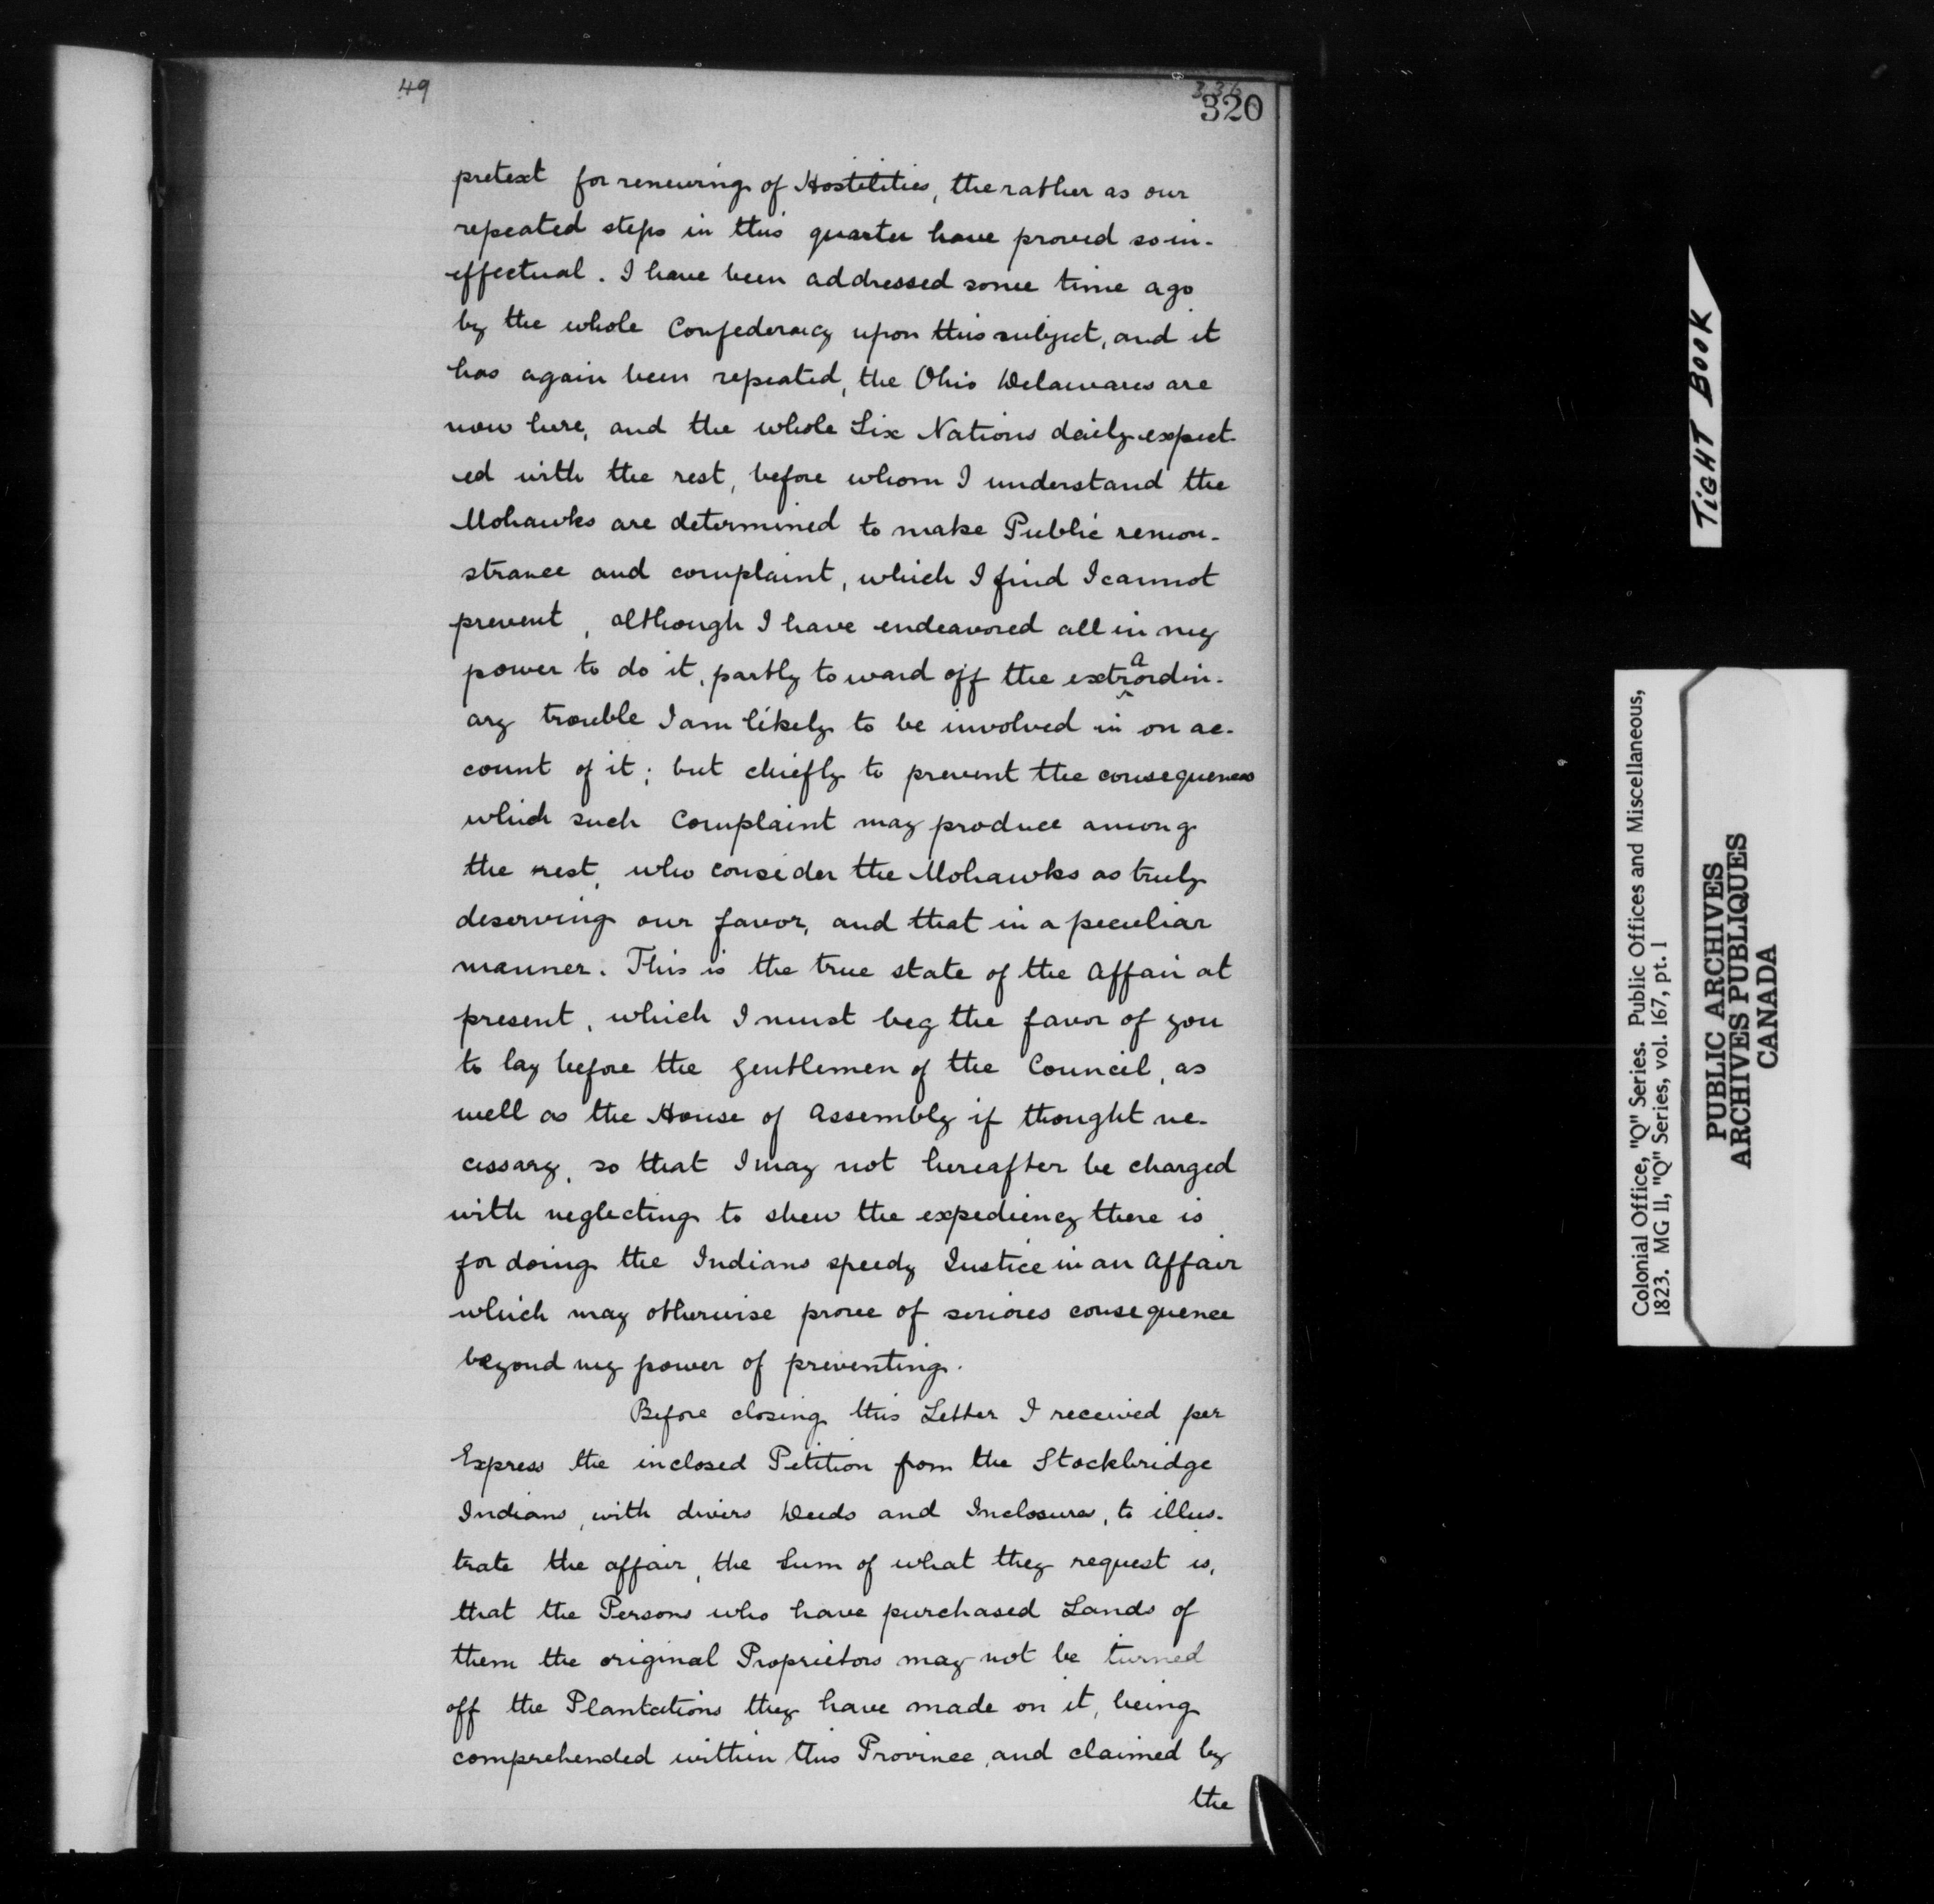 49
336
320
pretext for renewing of Hostilities, the rather as our
repeated steps in this quarter have proved so in-
effectual. I have been addressed some time ago
by the whole Confederacy upon this subject, and it
has again been repeated, the Ohio Delawares are
now here, and the whole Six Nations daily expect-
ed with the rest, before whom I understand the
Mohawks are determined to make Public remon-
strance and complaint, which I find I cannot
prevent, although I have endeavored all in my
power to do it, partly to ward off the extraordin-
ary trouble I am likely to be involved in on ac-
count of it; but chiefly to prevent the consequences
which such Complaint may produce among
the rest, who consider the Mohawks as truly
deserving our favor, and that in a peculiar
manner. This is the true state of the Affair at
present, which I must beg the favor of you
to lay before the Gentlemen of the Council, as
well as the House of Assembly if thought ne-
cessary, so that I may not hereafter be charged
with neglecting to shew the expediency there is
for doing the Indians speedy Justice in an Affair
which may otherwise prove of serious consequence
beyond my power of preventing.
Before closing this Letter I received per
Express the inclosed Petition from the Stockbridge
Indians, with divers Deeds and Inclosures, to illus-
trate the affair, the Sum of what they request is,
that the Persons who have purchased Lands of
them the original Proprietors may not be turned
off the Plantations they have made on it, being
comprehended within this Province, and claimed by
the
TIGHT BOOK
Colonial Office, "Q" Series. Public Offices and Miscellaneous,
1823. MG 11, "Q" Series, vol. 167, pt. 1
PUBLIC ARCHIVES
ARCHIVES PUBLIQUES
CANADA